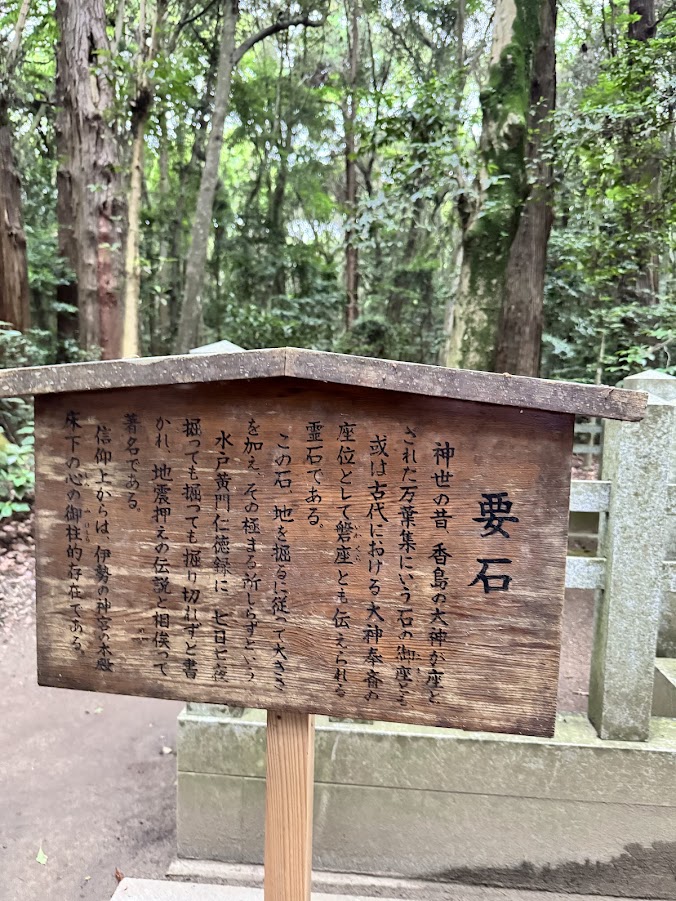 要石
神世の昔、香島の大神が座と
された万葉集にいう石の御座とも
みまし
或は古代における大神奉斎の
座位として磐座とも伝えられる
いわくら
霊石である。
この石、地を掘るに従って大きさ
を加え、その極まる所しらずという
水戸黄門仁徳録に、七日七夜
掘っても掘っても掘り切れずと書
かれ、地震押えの伝説と相俟って
著名である。
信仰上からは、伊勢の神宮の本殿
床下の心の御柱的存在である。